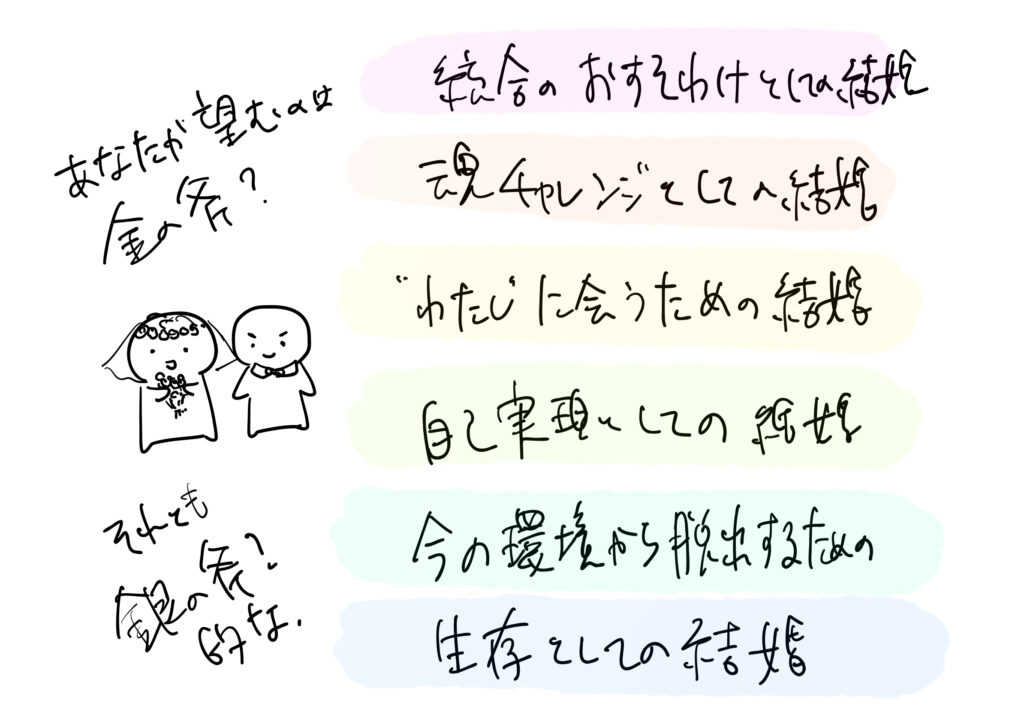 統合のおすそわけとしての結婚
魂チャレンジとしての結婚
"わたし"に会うための結婚
自己実現としての結婚
今の環境から脱出するための
生存としての結婚
あなたが望むのは
金の斧？
それとも
銀の斧？
的な．